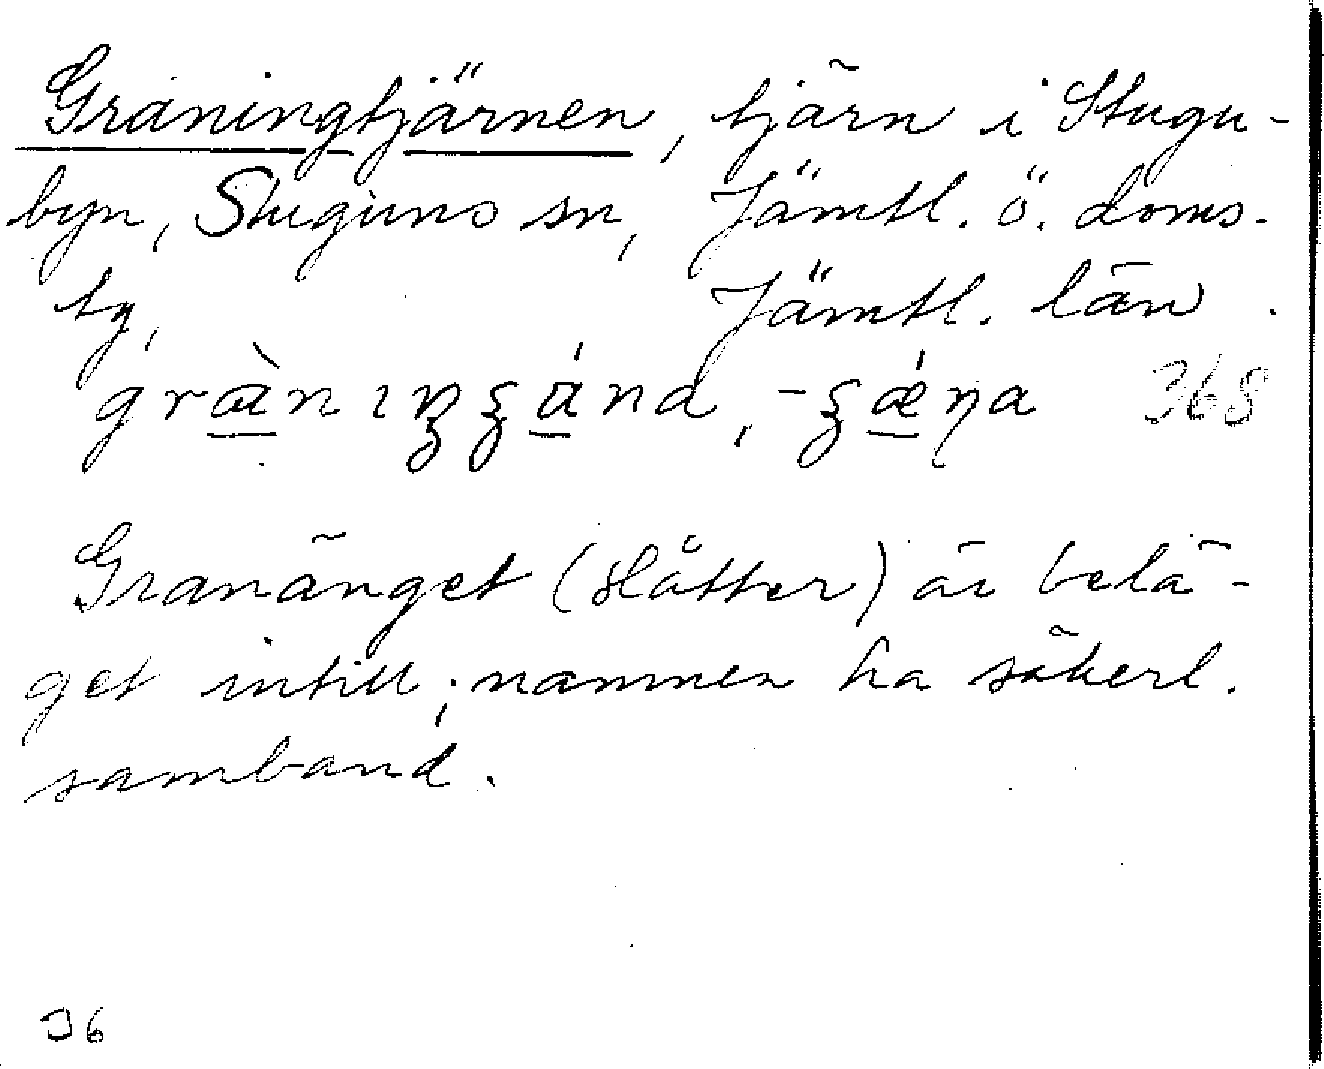 Graningtjärnen, tjärn i Stugu-
byn, Stuguns sn, Jämtl. ö. doms-
Jämtl. län.
368
Granänget (slåtter) är belä-
get intill; namnen ha säkerl.
samband.
J6